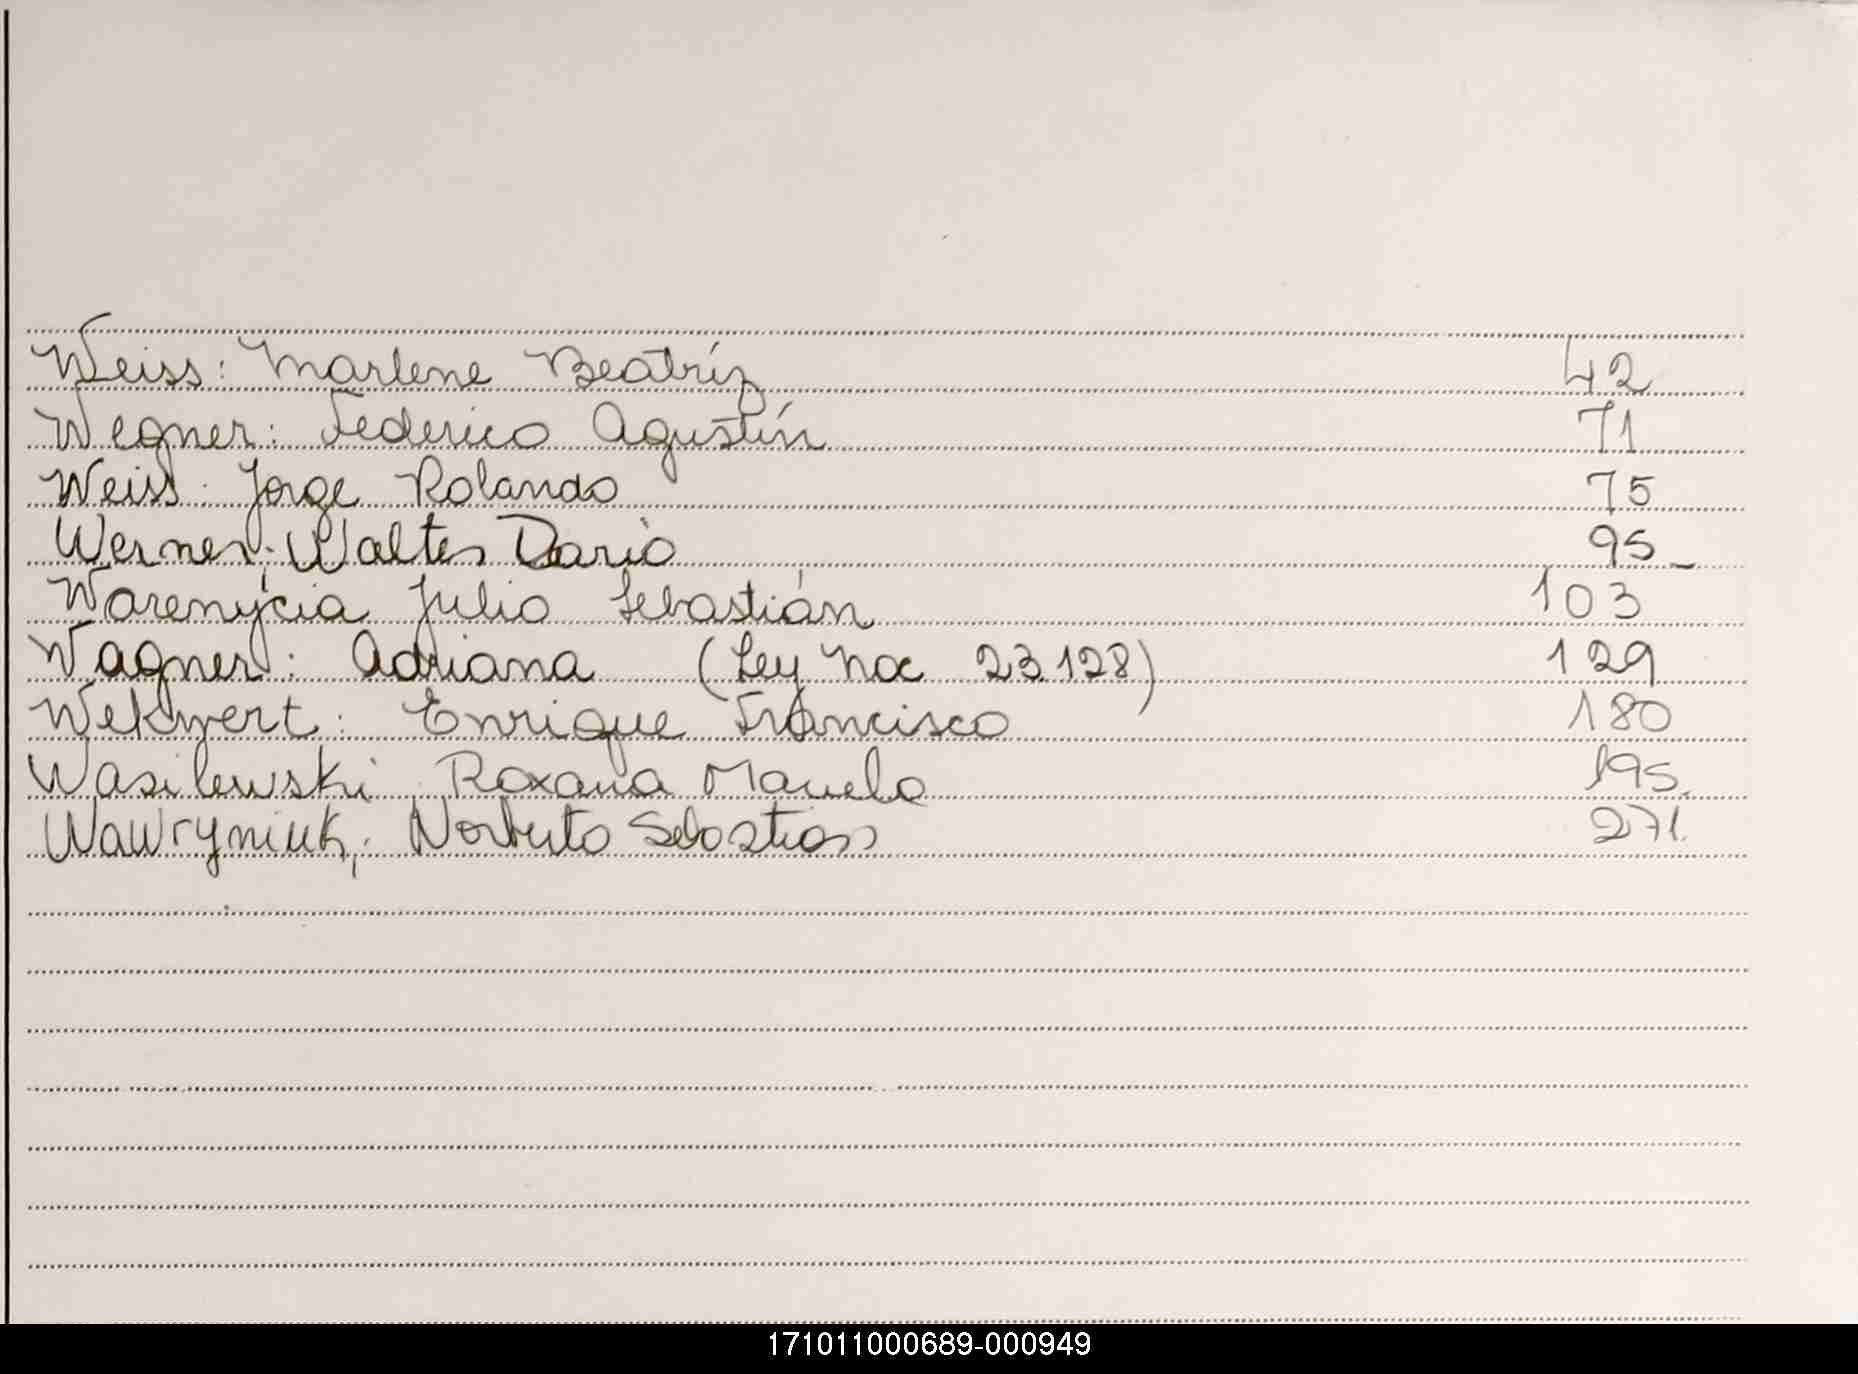 Weiss: Marlene Beatríz 42
Wegner: Federico Agustín 71
Weiss: Jorge Rolando 75
Werner: Walter Dario 95
Warenycia Julio Sebastián 103
Wagner: Adriana (Ley Nac 23.128) 129
Wekwert: Enrique Francisco 180
Wasilewski Roxana Mariela 195.
Wawryniuk, Norberto Sebastian 271.
171011000689-000949